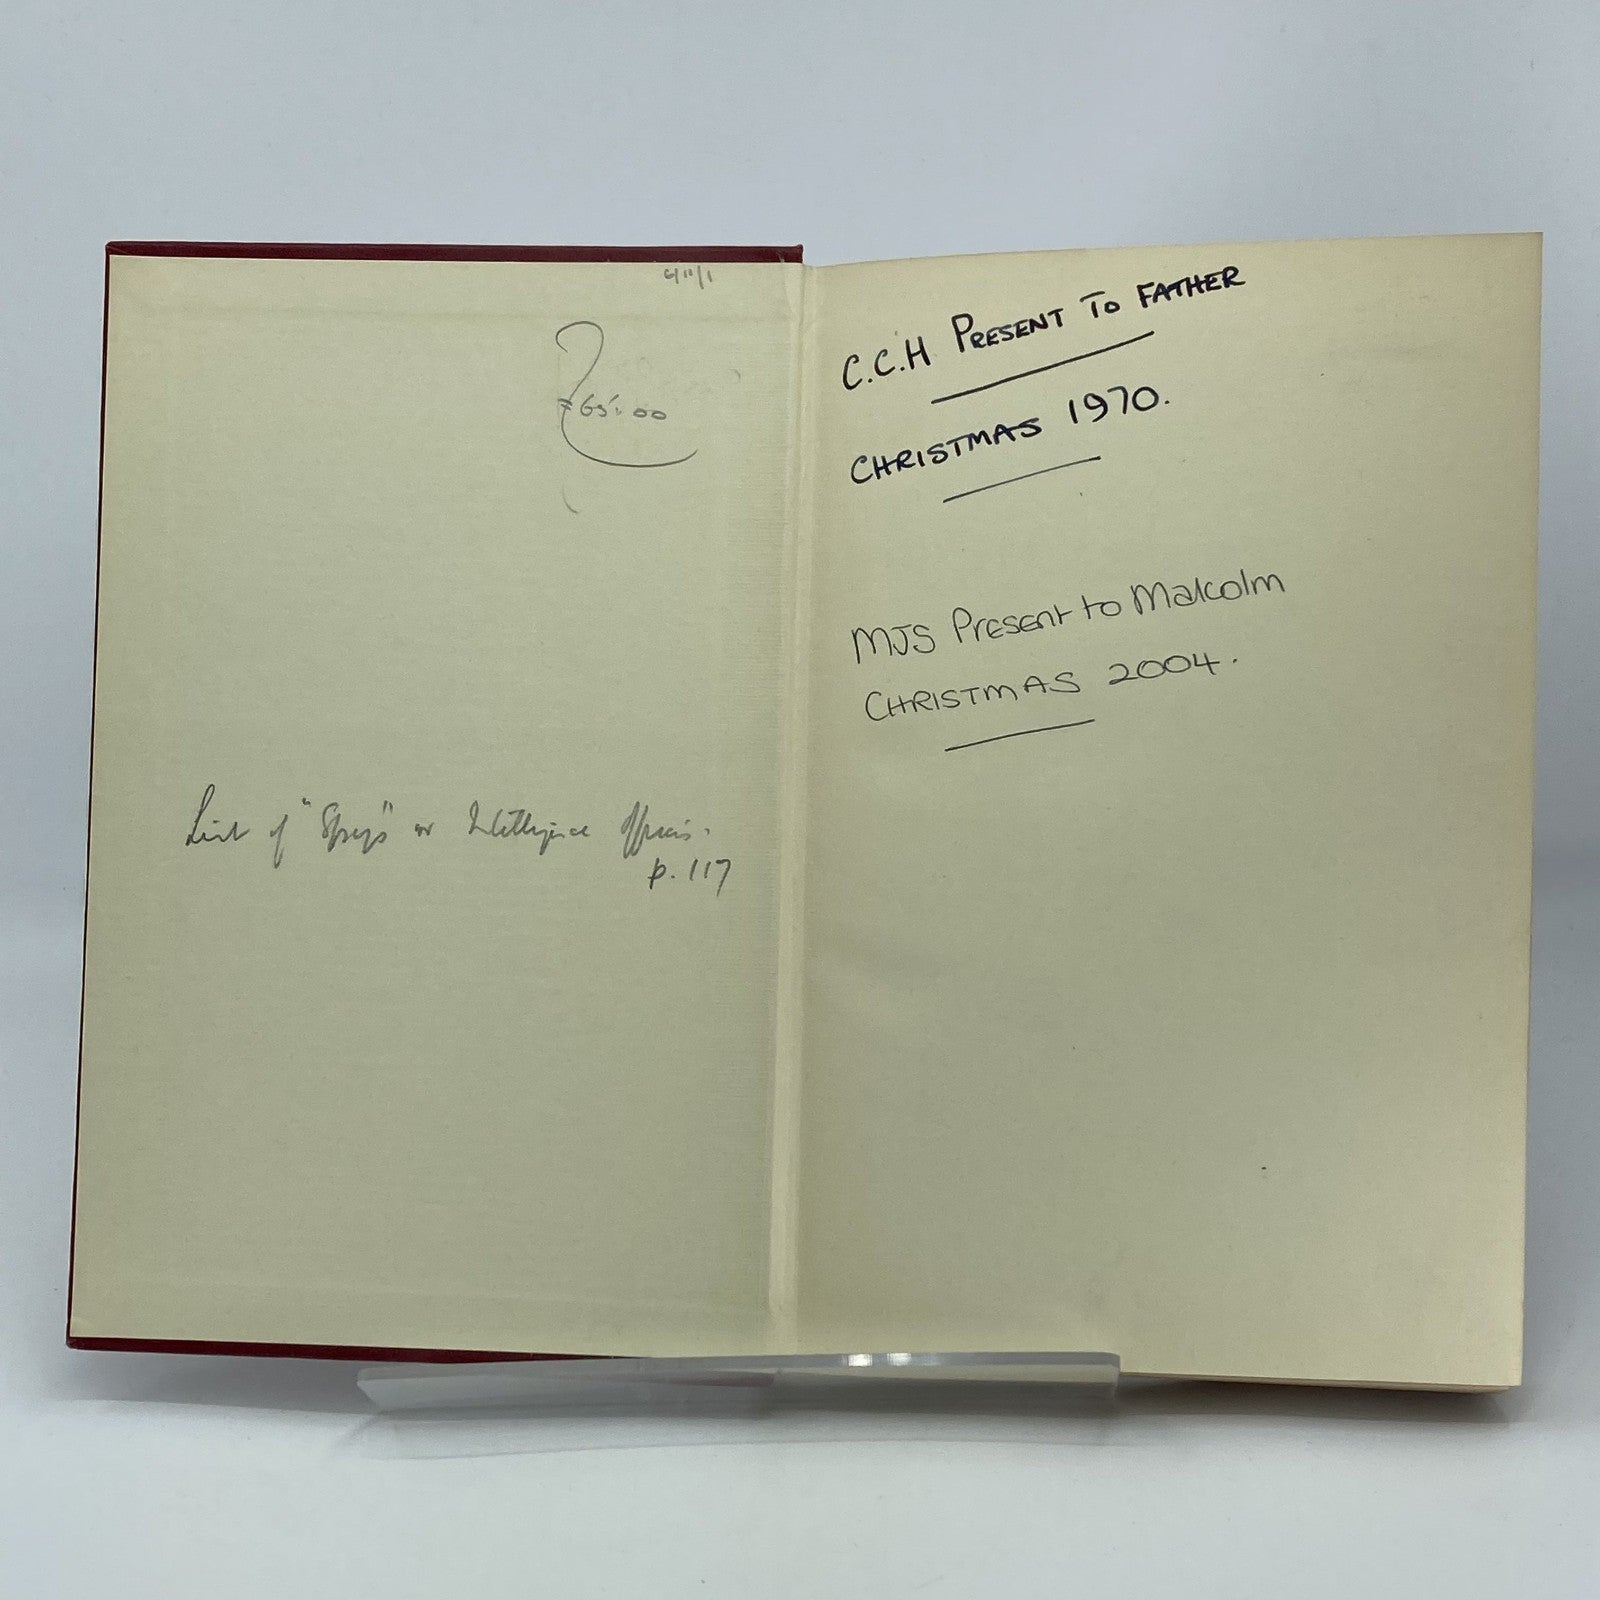 £65.00
List of "Spys" or Intelligence Officers.
p. 117
C.C.H PRESENT TO FATHER
CHRISTMAS 1970.
MJS Present to Malcolm
CHRISTMAS 2004.